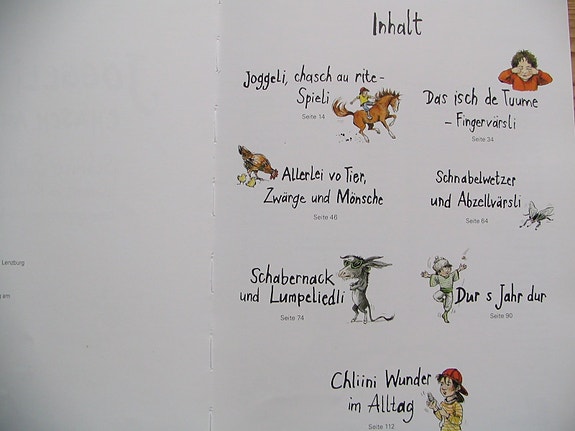 Inhalt
Joggeli, chasch au rite-
Spieli
Seite 14
Das isch de Tuume
– Fingervärsli
Seite 34
Allerlei vo Tier,
Zwärge und Mönsche
Seite 46
Schnabelwetzer
und Abzellvärsli
Seite 64
Schabernack
und Lumpeliedli
Seite 74
Dur s Jahr dur
Seite 90
Chliini Wunder
im Alltag
Seite 112
Lenzburg
am